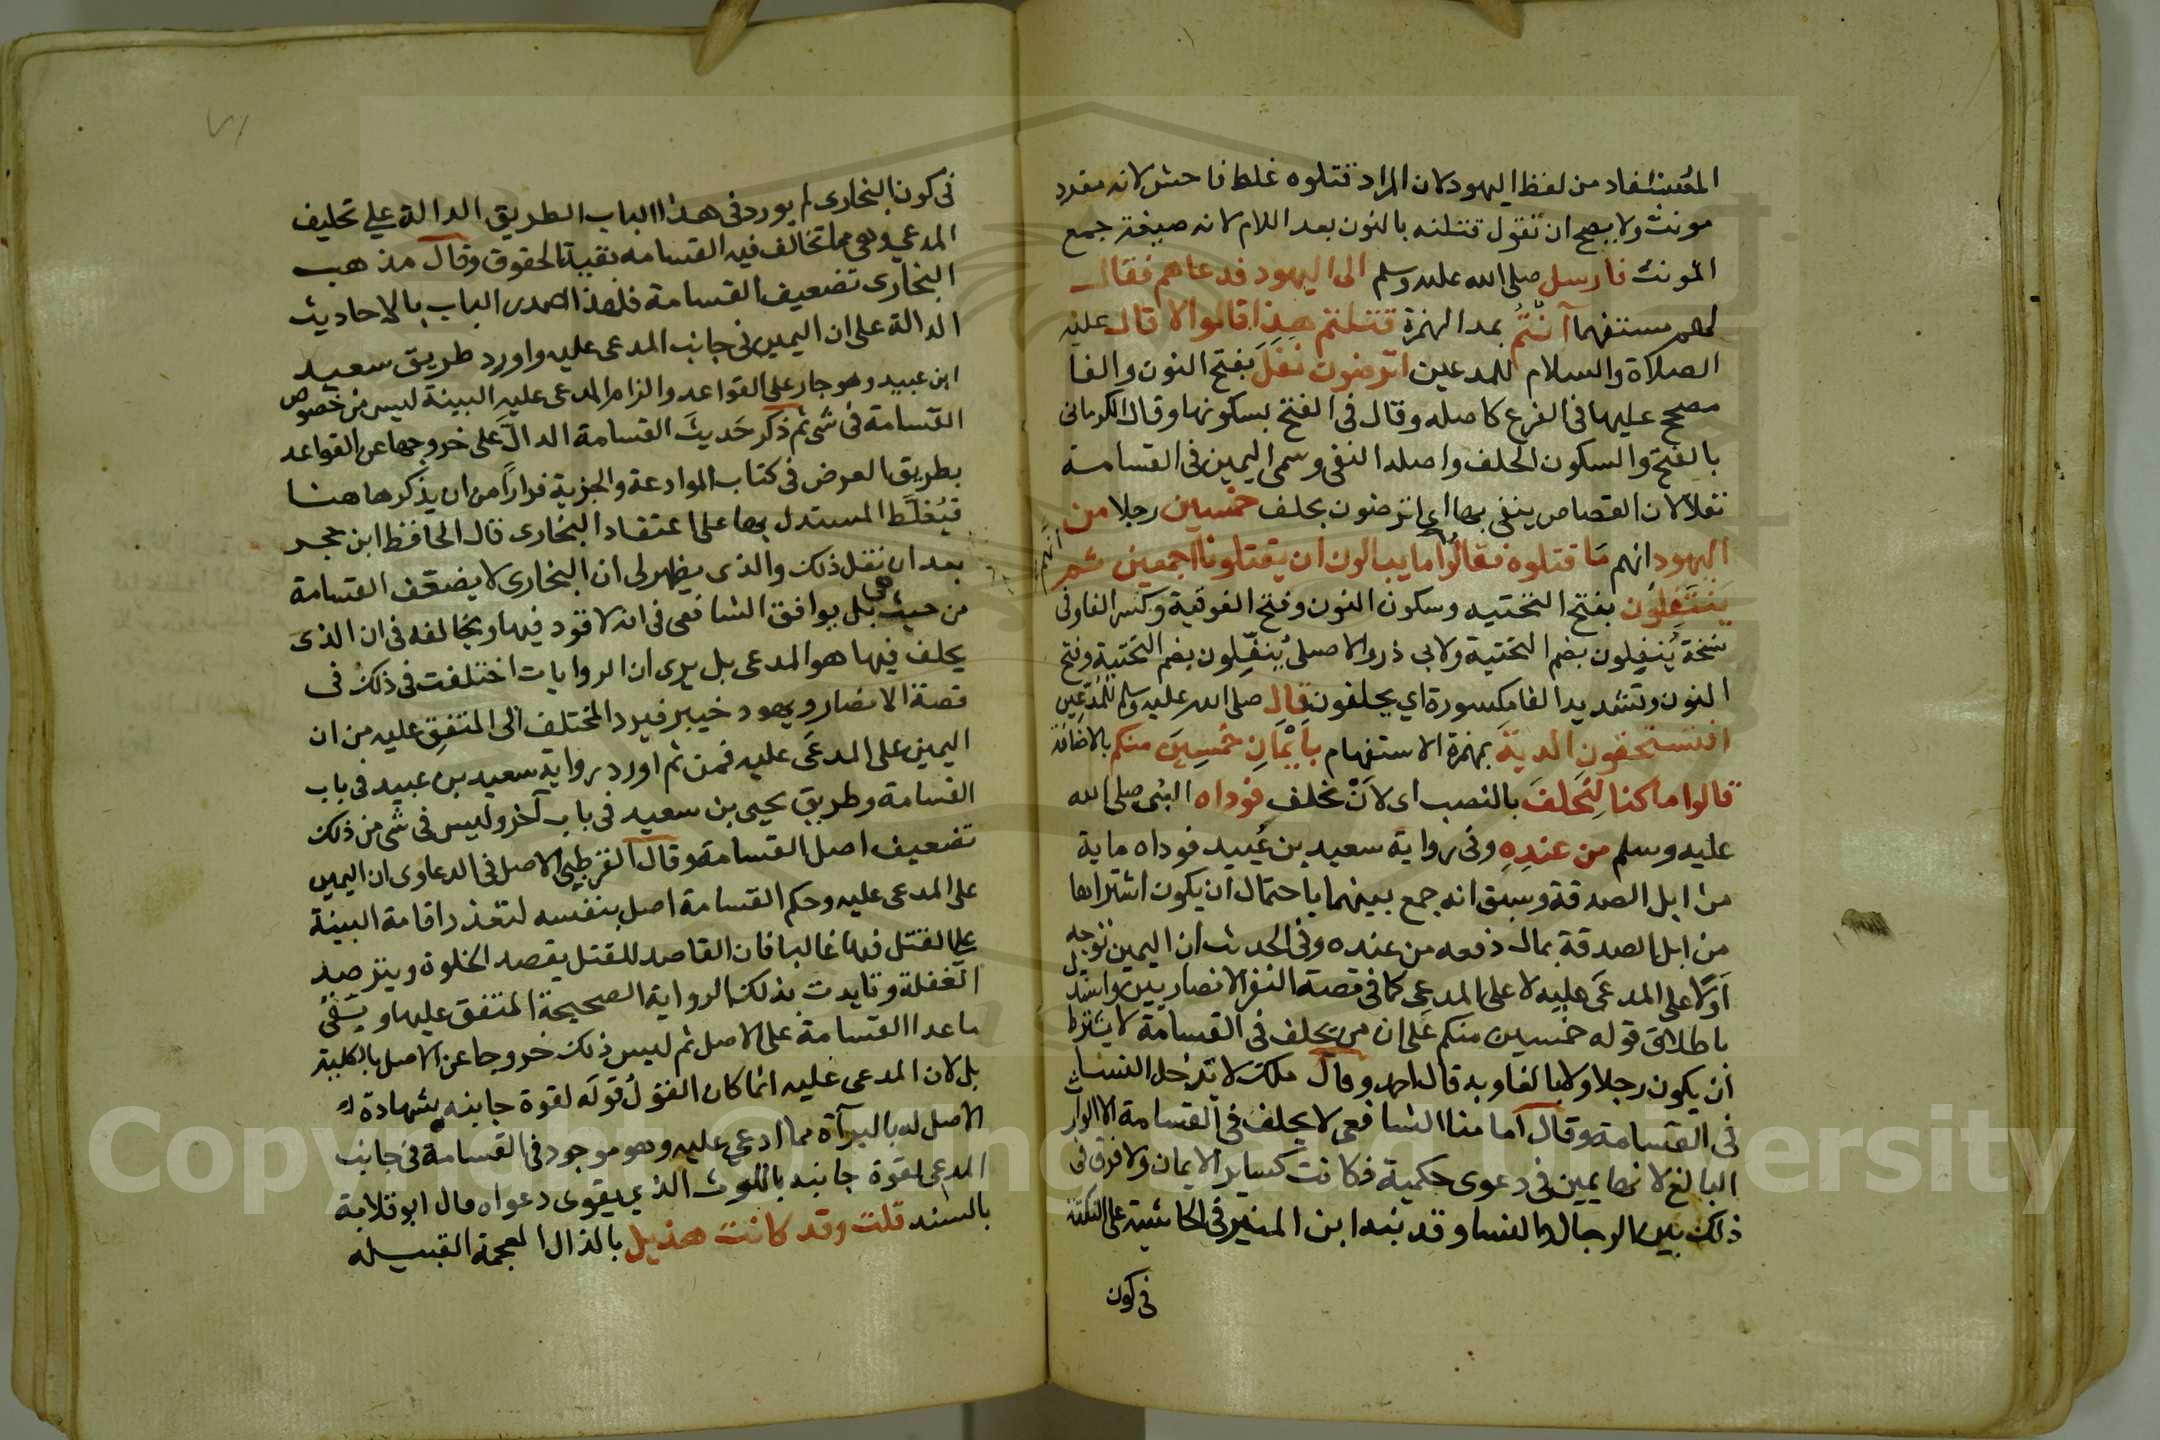 المستفاد من لفظ اليهود لان المراد قتلوه غلط فاحش لانه مفرد
مونث ولا يصح ان تقول قتلنه بالنون بعد اللام لانه صيغة جمع
المونث فارسل صلى الله عليه وسلم الى اليهود فدعاهم فقال
لهم مستفهما آنتم بمد الهمزة قتلتم هذا قالوا لا قال عليه
الصلاة والسلام للمدعين اترضون نفل بفتح النون والفا
مصحح عليها فى الفرع كاصله وقال فى الفتح بسكونها وقال الكرمانى
بالفتح والسكون الحلف واصله النفى وسمى اليمين فى القسامة
نفلا لان القصاص ينفى بها اى اترضون بحلف خمسين رجلا من
اليهود انهم ما قتلوه فقالوا ما يبالون ان يقتلونا اجمعين ثم
انهم
ينتفلون بفتح التحتيه وسكون النون وفتح الفوقية وكسر الفا وفى
نسخة ينفلون بضم التحتية ولابى ذر والاصيلى ينفلون بضم التحتية وفتح
النون وتشديد الفا مكسورة اي يحلفون قال صلى الله عليه وسلم للمدعين
افتستحقون الدية بهمزة الاستفهام بأيمان خمسين منكم بالاضافة
قالوا ما كنا لنحلف بالنصب اى لان نحلف فوداه النبى صلى الله
عليه وسلم من عنده وفى رواية سعيد بن عبيد فوداه ماية
من ابل الصدقة وسبق انه جمع بينهما باحتمال ان يكون اشتراها
من ابل الصدقة بمال دفعه من عنده وفى الحديث ان اليمين توجه
اولا على المدعى عليه لا على المدعى كما فى قصة النفر الانصاريين واستدل
باطلاق قوله خمسين منكم على ان من يحلف فى القسامة لا يشترط
ان يكون رجلا ولا بالغا وبه قال احمد وقال ملك لا تدخل النسا
فى القسامة وقال امامنا الشافعى لا يحلف فى القسامة الا الوارث
البالغ لانها يمين فى دعوى حكمية فكانت كساير الايمان ولا فرق فى
ذلك بين الرجال والنسا وقد نبه ابن المنير فى الحاشية على النكتة
فى كون
٧١
فى كون البخارى لم يورد فى هذا الباب الطريق الدالة على تحليف
المدعي وهى مما تخالف فيه القسامه بقية الحقوق وقال مذهب
البخارى تضعيف القسامة فلهذا صدر الباب بالاحاديث
الدالة على ان اليمين فى جانب المدعى عليه واورد طريق سعيد
ابن عبيد وهو جار على القواعد والزام المدعى عليه البينة ليس من خصوص
القسامة فى شى ثم ذكر حديث القسامة الدال على خروجها عن القواعد
بطريق العرض فى كتاب الموادعة والجزية فرارا من ان يذكرها هنا
فيغلط المستدل بها على اعتقاد البخارى قال الحافظ ابن حجر
بعد ان نقل ذلك والذى يظهر لى ان البخارى لا يضعف القسامة
من حيث هى بل يوافق الشافعى فى انه لا قود فيها ويخالفه فى ان الذى
يحلف فيها هو المدعى بل يرى ان الروايات اختلفت فى ذلك فى
قصة الانصار ويهود خيبر فيرد المختلف الى المتفق عليه من ان
اليمين على المدعى عليه فمن ثم اورد رواية سعيد بن عبيد فى باب
القسامة وطريق يحيى بن سعيد فى باب آخر وليس فى شى من ذلك
تضعيف اصل القسامة وقال القرطبى الاصل فى الدعاوى ان اليمين
على المدعى عليه وحكم القسامة اصل بنفسه لتعذر اقامة البينة
على القتل فيها غالبا فان القاصد للقتل يقصد الخلوة ويترصد
الغفلة وتايدت بذلك الرواية الصحيحة المتفق عليها وبقى
ما عدا القسامة على الاصل ثم ليس ذلك خروجا عن الاصل بالكلية
بل لان المدعى عليه انما كان القول قوله لقوة جانبه بشهادة
الاصل له بالبرآة مما ادعي عليه وهو موجود فى القسامة فى جانب
المدعى لقوة جانبه باللوث الذي يقوى دعواه قال ابو قلابة
بالسند قلت وقد كانت هذيل بالذال المعجمة القبيلة
Copyright © King Saud University